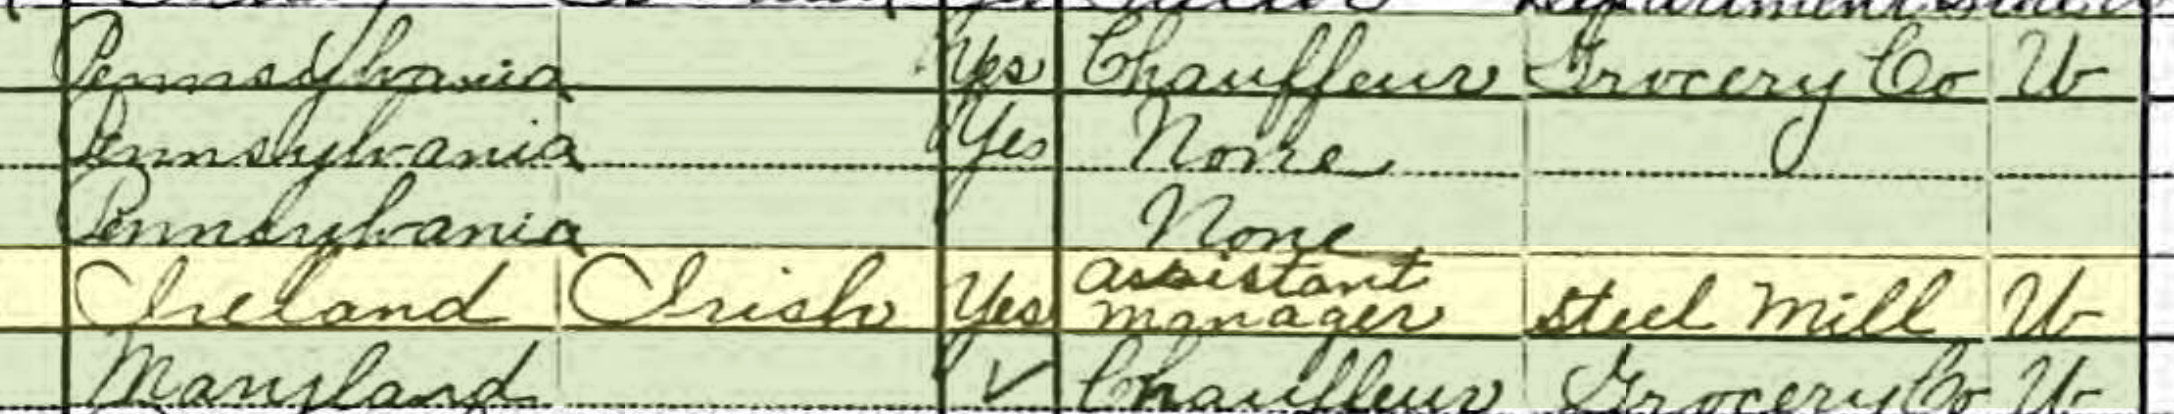 Pennsylvania Yes Chauffeur Grocery Co W
Pennsylvania Yes None
Pennsylvania None
Ireland Irish Yes assistant manager Steel Mill W
Maryland ✓ Chauffeur Grocery Co W